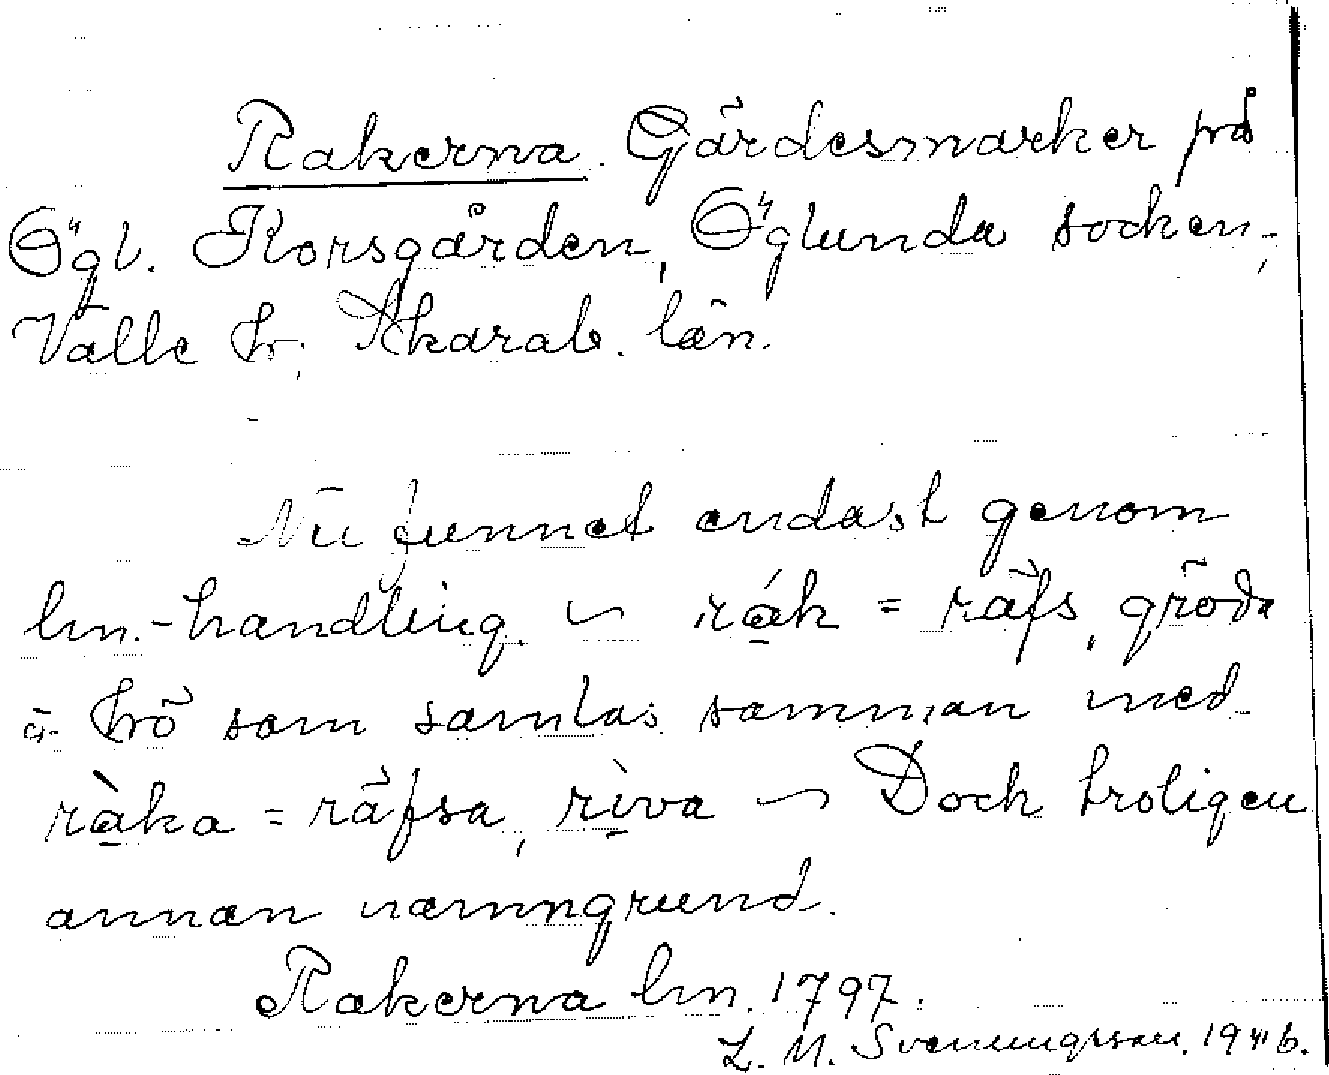 Rakerna. Gärdesmarker på
Ögl. Korsgården, Öglunda socken,
Valle hr, Skarab. län.
Nu funnet endast genom
lm.-handling. ~ rák = räfs, gröda
å trö som samlas samman med
ràka = räfsa, rìva ~ Doch troligen
annan namngrund.
Rakerna lm. 1797.
L. M. Svenungsson. 1946.